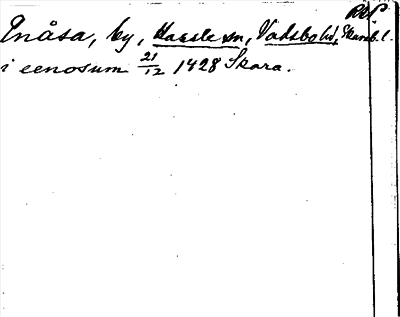 RAP.
Enåsa, by, Hassle sn, Vadsbo hd, Skarab. l.
i eenosum 21/12 1428 Skara.